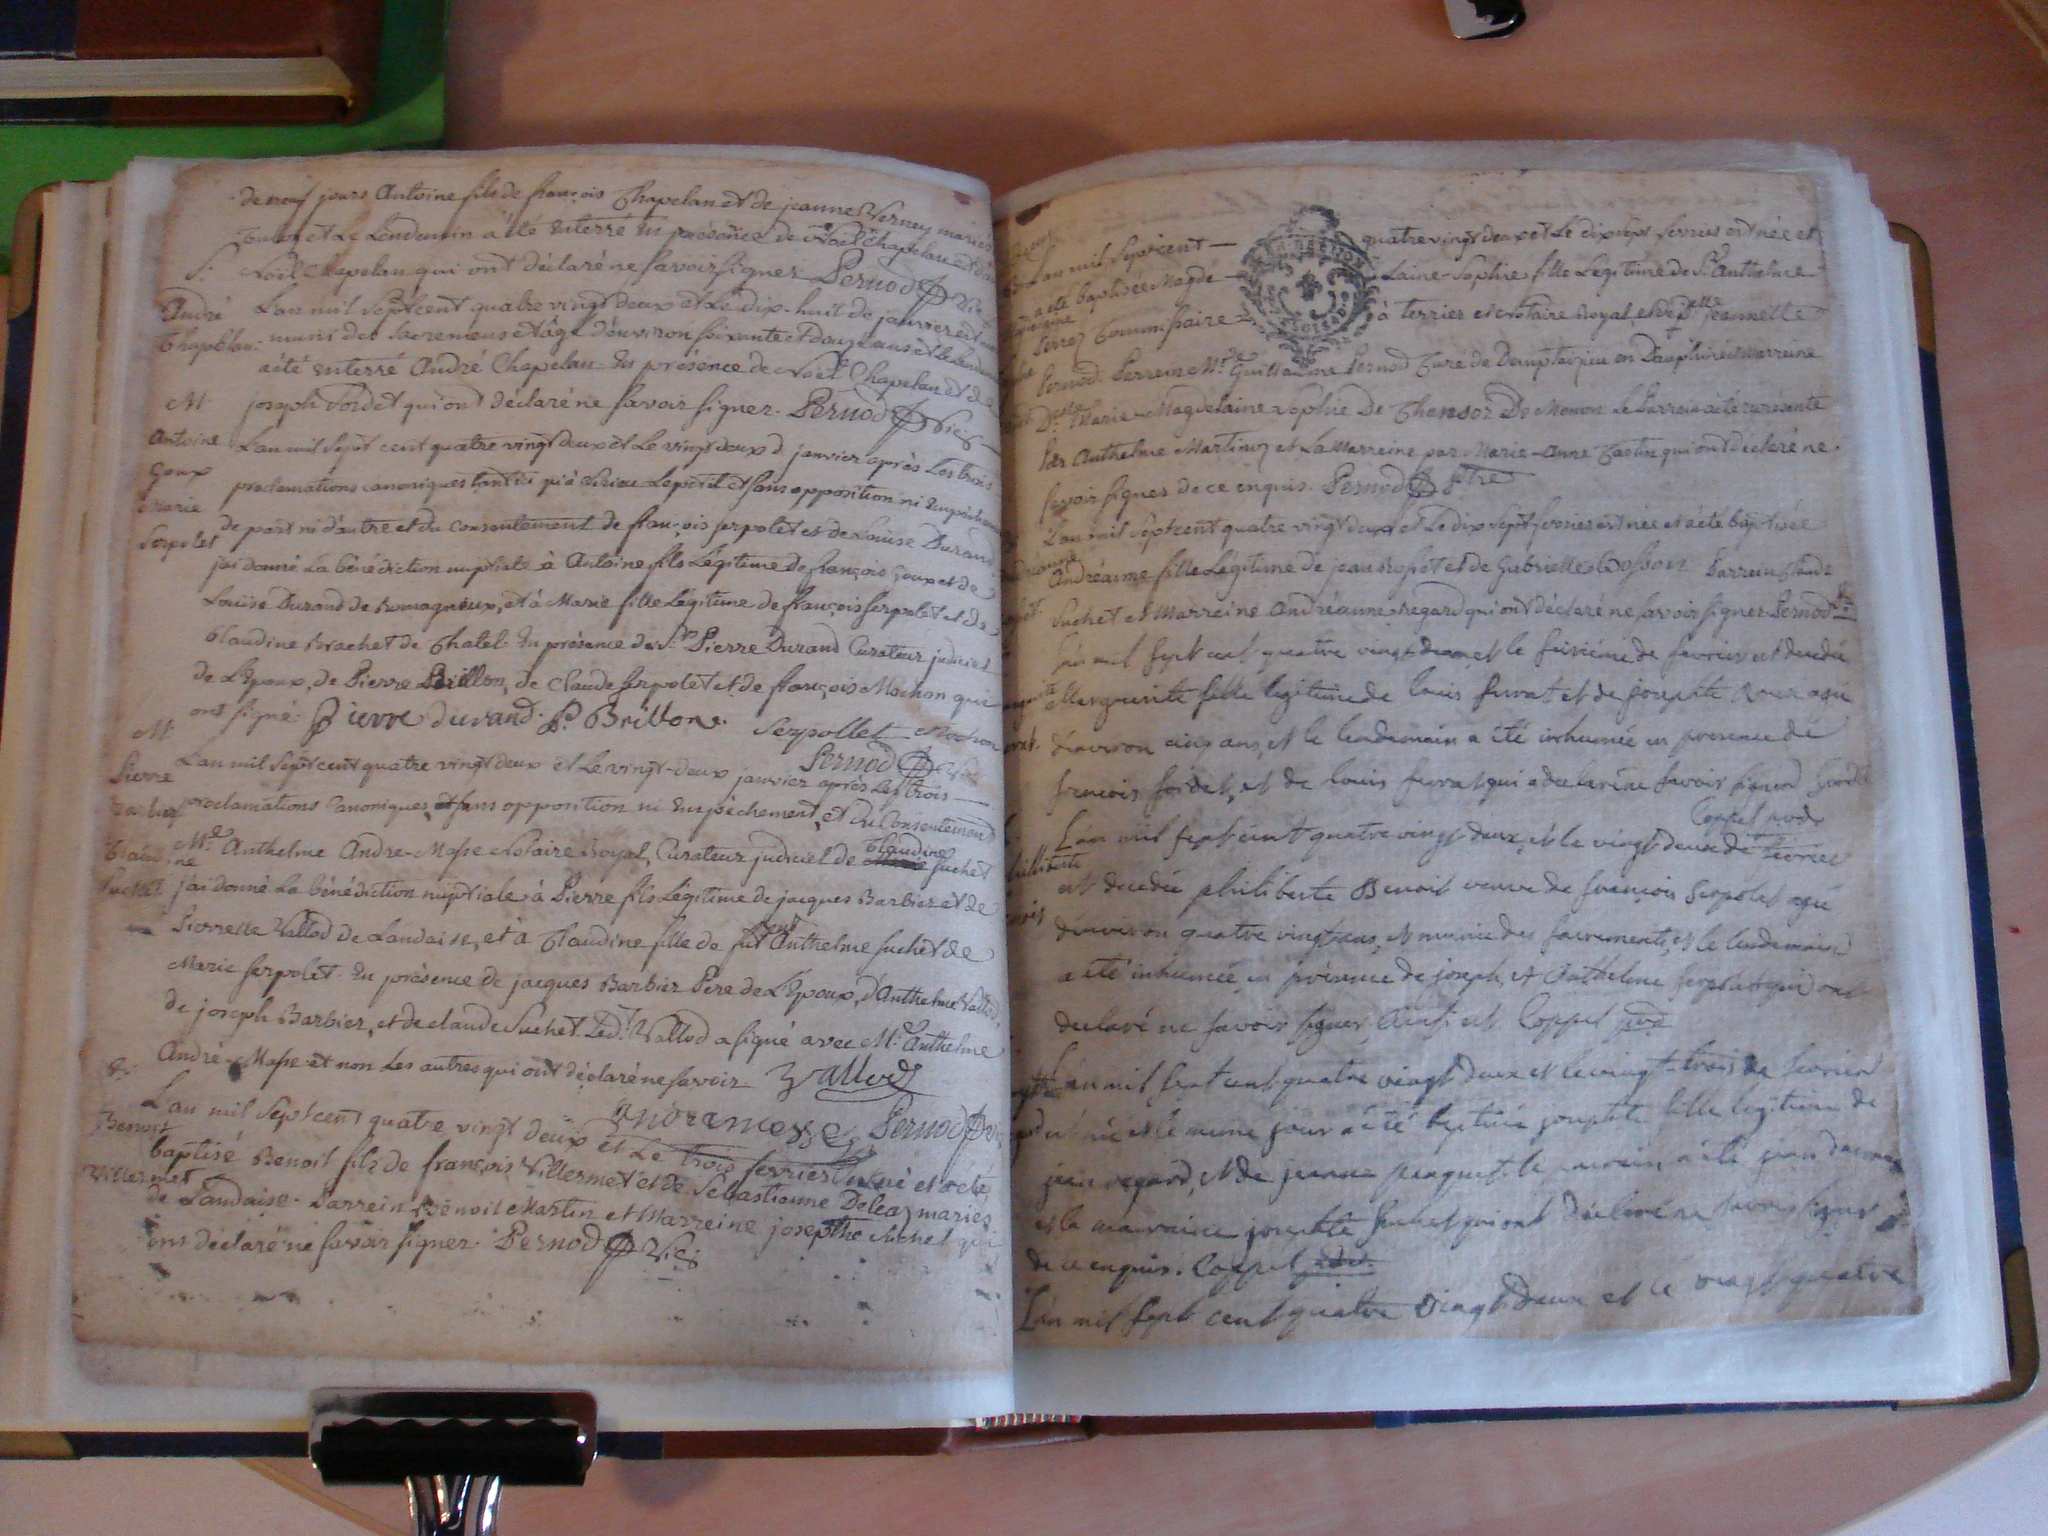 de neuf jours Antoine fils de françois Chapelan et de jeanne Verney mariés
et Le Lendemain à été enterré En présence de Noël Chapelan et d'au
S: Noël Chapelan qui ont déclaré ne savoir signer Pernod Vic
André L'an mil Sept cent quatre vingt deux et Le dix-huit de janvier est
Chapelan muni des Sacremens et âgé d'environ soixante et douze ans et le Lendemain
à été enterré André Chapelan En présence de Noël Chapelan et de
M joseph Sordet qui ont déclaré ne savoir signer. Pernod Vic
Antoine L'an mil Sept cent quatre vingt deux et Le vingt deux d. janvier après Les trois
Goux proclamations canoniques tant ici qu'à et sans opposition ni Empêchement
Marie de part ni d'autre et du consentement de françois serpolet et de Louise Durand
Serpolet j'ai donné La bénédiction nuptiale à Antoine fils Légitime de françois Goux et de
Louise Durand de Romagneux, et à Marie fille Légitime de françois Serpolet et de
Claudine Brachet de Chatel. En présence de Sr. Pierre Durand Curateur judiciel
de L'Epoux, de Pierre Brillon, de Claude Serpolet et de françois Mochon qui
ont signé Pierre durand. P. Brillon. Serpollet Mochon
M Pernod Vic
Pierre L'an mil Sept cent quatre vingt deux et Le vingt-deux janvier après Les trois
Barbier proclamations Canoniques, et sans opposition ni Empêchement, et du Consentement
Claudine Me Anthelme André-Masse Notaire Royal, Curateur judiciel de Claudine Suchet
Suchet j'ai donné La bénédiction nuptiale à Pierre fils Légitime de jacques Barbier et de
Pierrette Vallod de Landaise, et à Claudine fille de feu Anthelme Suchet de
Marie Serpolet. En présence de jacques Barbier Père de L'Epoux, d'Anthelme Vallod,
de joseph Barbier, et de claude Suchet. Led. Vallod a signé avec Me. Anthelme
André-Masse et non Les autres qui ont déclaré ne savoir Vallod
B: Andremasse Pernod Vic
Benoit L'an mil Sept cent quatre vingt deux et Le trois ferrier est né et a été
Villermet baptisé Benoit fils de françois Villermet et de Sébastienne Deleaz mariés
de Landaise. Parrein Benoit Martin et Marreine josephte Suchet qui
ont déclaré ne savoir signer. Pernod Vic
L'an mil Sept cent quatre vingt deux et Le dix sept ferrier est née et
a été baptisée Magde laine-Sophie fille Légitime de Sr. Anthelme
Perret Commissaire à terrier et Notaire Royal, et de Delle Jeannette
Pernod. Parrein Mre. Guillaume Pernod Curé de en Dauphiné et Marreine
Delle. Marie-Magdelaine Sophie De Le Parrein à été représenté
par Anthelme Martin et La Marreine par Marie-Anne qui ont déclaré ne
savoir signer de ce enquis. Pernod Ptre
L'an mil Sept cent quatre vingt deux et Le dix Sept ferrier est née et à été baptisée
Andréanne fille Légitime de jean et de Gabrielle Parrein Claude
Suchet et Marreine Andréanne regard qui ont déclaré ne savoir signer Pernod
L'an mil sept cent quatre vingt deux et le de fevrier est decedée
Marguerite fille legitime de louis furvat et de josephte Roux agée
d'environ cinq ans, et le lendemain a été inhumée en presence de
francois sordet, et de louis furvat qui declaré ne savoir signer
Coppel
L'an mil sept cent quatre vingt deux, et le vingt deux de fevrier
est decedée philiberte Benoit veuve de francois Serpolet agée
d'environ quatre vingt ans, et munie des sacrements, et le lendemain
a été inhumée en présence de joseph, et Anthelme Serpolet qui ont
declaré ne savoir signer. Ainsi est Coppel
L'an mil sept cent quatre vingt deux et le vingt-trois de fevrier
est née et le meme jour a été baptisée josephte fille legitime de
jean regard, et de jeanne le parrein a été jean
et la marraine josephte Suchet qui ont declaré ne savoir signer
de ce enquis. Coppel
L'an mil sept cent quatre vingt deux et le vingt quatre